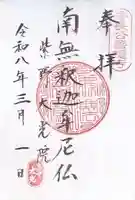 奉拝
南無釈迦牟尼仏
紫野大光院
令和八年三月一日